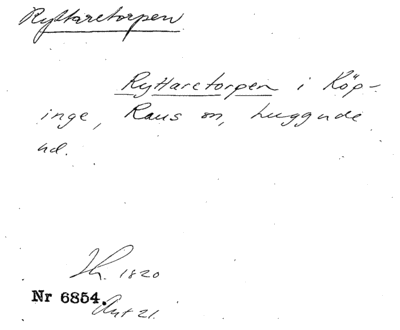 Ryttaretorpen
Ryttaretorpen i Köp-
inge, Raus sn, Luggude
hd.
Jh. 1820
Nr 6854.
Ant 21.